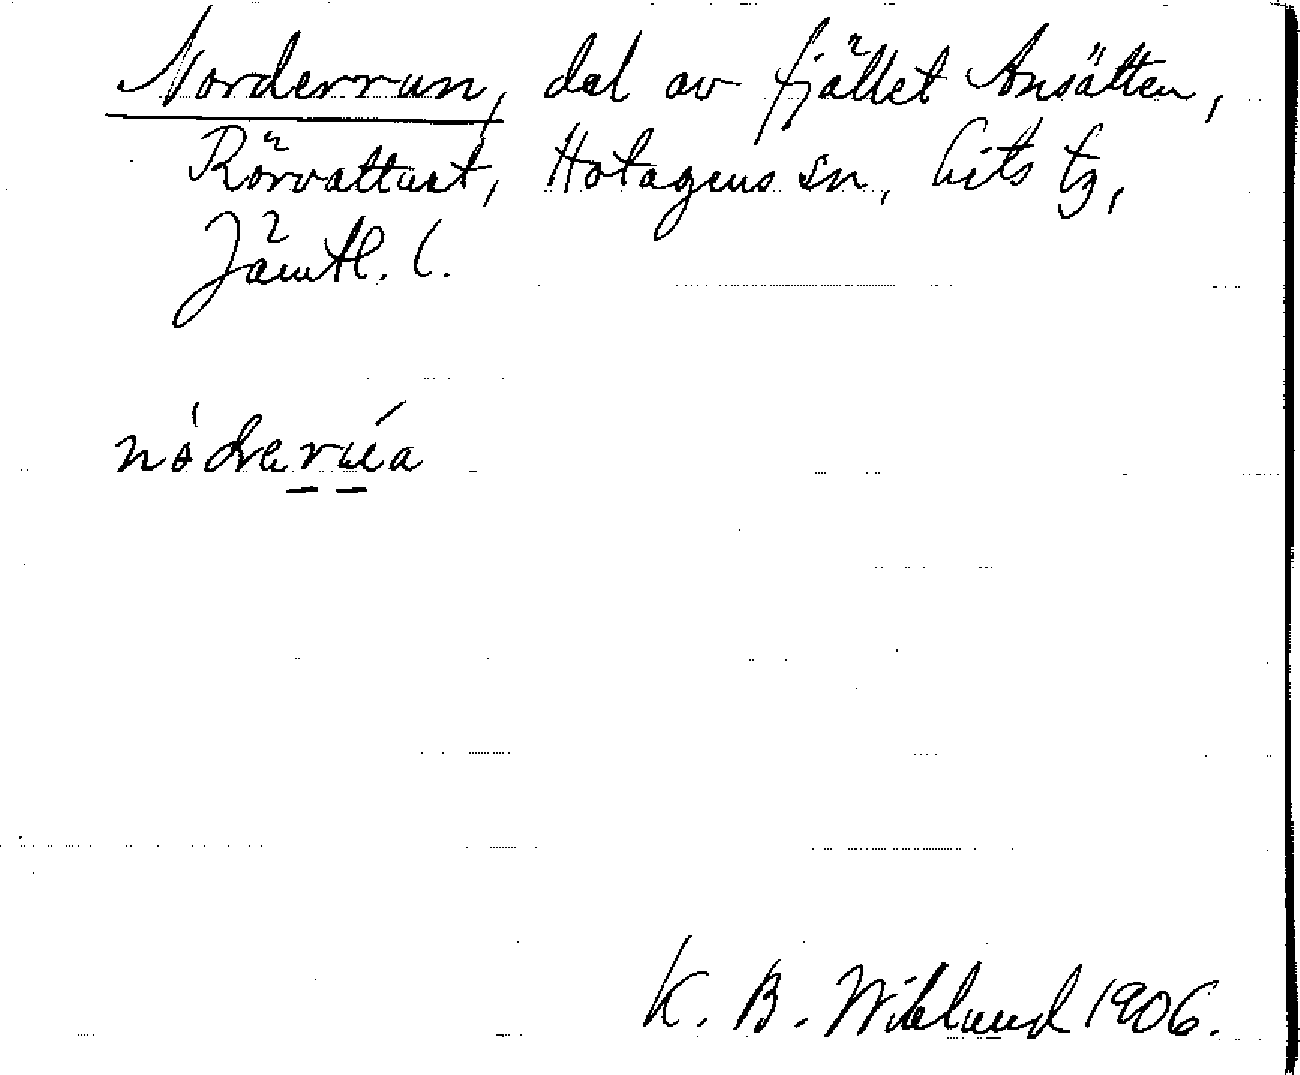 Norderrun, del av fjället Ansätten,
Rörvattnet, Hotagens sn, Lits tg,
Jämtl. l.
nóderúa
K. B. Wiklund 1906.